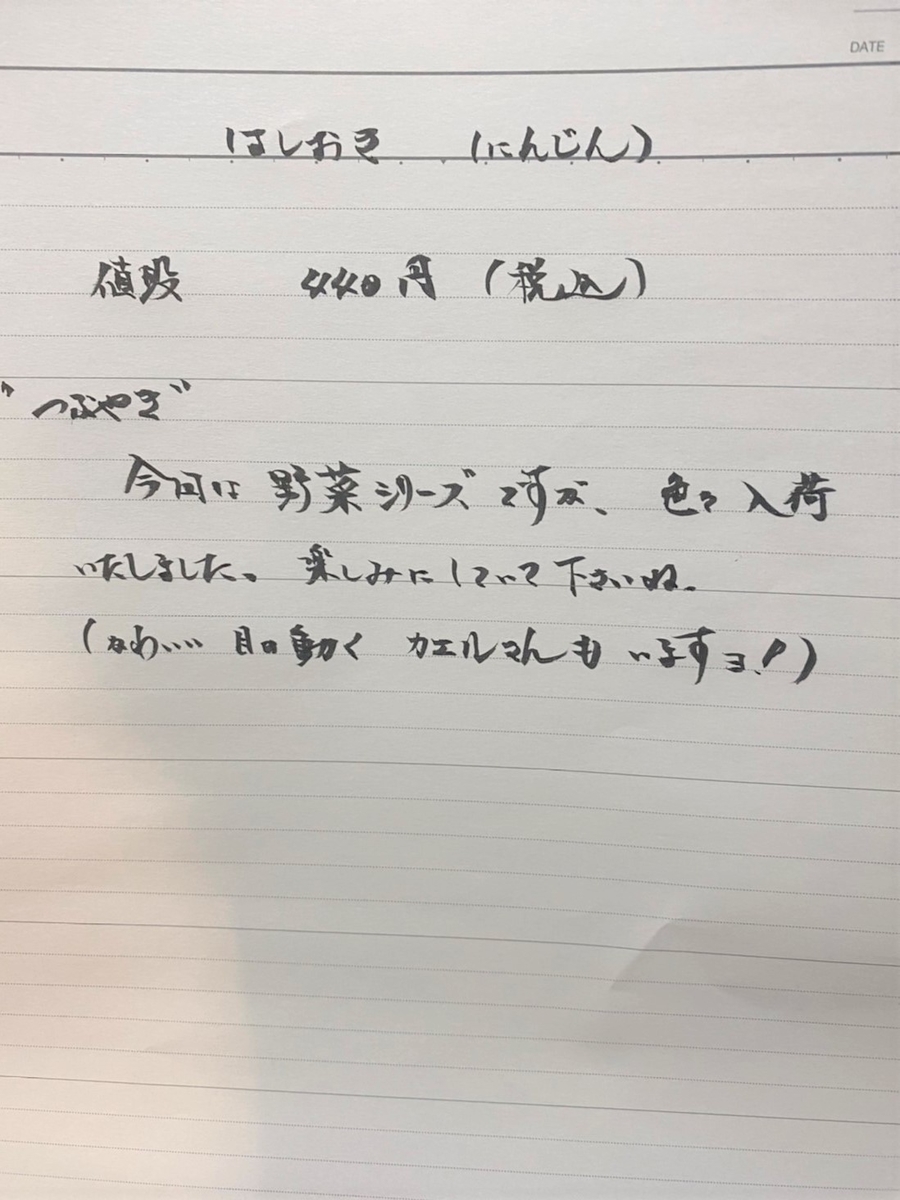 DATE
はしおき （にんじん）
値段 440円 （税込）
"つぶやき"
今回は 野菜シリーズですが、 色々入荷
いたしました。 楽しみにしていて下さいね。
（かわいい 目の動く カエルさんも いますヨ！）